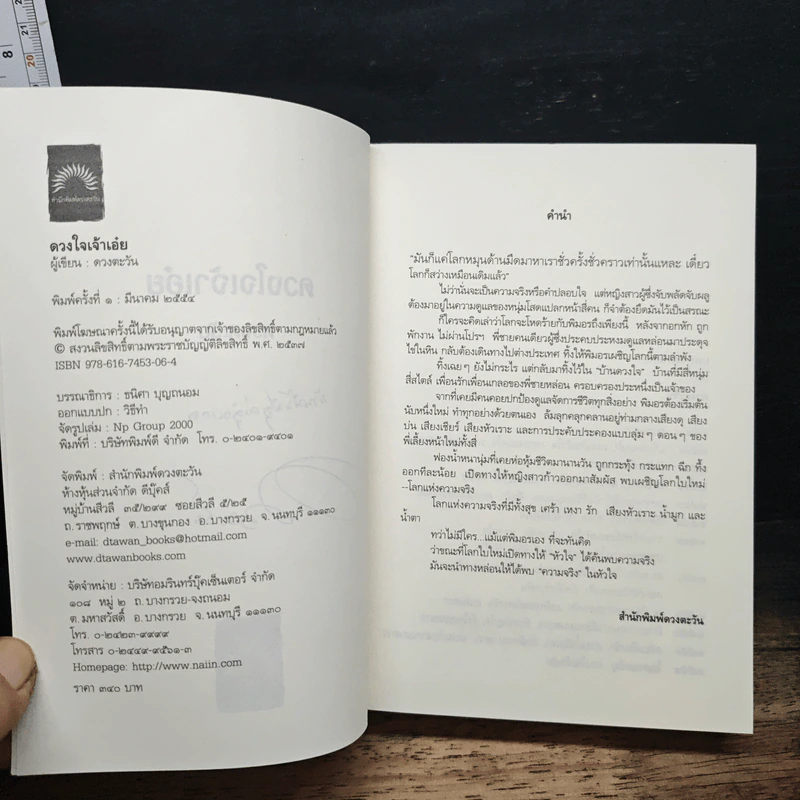 สำนักพิมพ์ดวงตะวัน
ดวงใจเจ้าเอ๋ย
ผู้เขียน : ดวงตะวัน
พิมพ์ครั้งที่ ๑ : มีนาคม ๒๕๕๔
พิมพ์โฆษณาครั้งนี้ได้รับอนุญาตจากเจ้าของลิขสิทธิ์ตามกฎหมายแล้ว
© สงวนลิขสิทธิ์ตามพระราชบัญญัติลิขสิทธิ์ พ.ศ. ๒๕๓๗
ISBN 978-616-7453-06-4
บรรณาธิการ : ชนิศา บุญถนอม
ออกแบบปก : วิธีทำ
จัดรูปเล่ม : Np Group 2000
พิมพ์ที่ : บริษัทพิมพ์ดี จำกัด โทร. ๐-๒๔๐๑-๙๔๐๑
จัดพิมพ์ : สำนักพิมพ์ดวงตะวัน
ห้างหุ้นส่วนจำกัด ดีบุ๊คส์
หมู่บ้านสีวลี ๓๕/๒๙๙ ซอยสีวลี ๕/๒๕
ถ.ราชพฤกษ์ ต.บางขุนกอง อ.บางกรวย จ.นนทบุรี ๑๑๑๓๐
e-mail: dtawan_books@hotmail.com
www.dtawanbooks.com
จัดจำหน่าย : บริษัทอมรินทร์บุ๊คเซ็นเตอร์ จำกัด
๑๐๘ หมู่ ๒ ถ.บางกรวย-จงถนอม
ต.มหาสวัสดิ์ อ.บางกรวย จ.นนทบุรี ๑๑๑๓๐
โทร. ๐-๒๔๒๓-๙๙๙๙
โทรสาร ๐-๒๔๔๙-๙๕๖๑-๓
Homepage: http://www.naiin.com
ราคา ๓๔๐ บาท
คำนำ
“มันก็แค่โลกหมุนด้านมืดมาหาเราชั่วครั้งชั่วคราวเท่านั้นแหละ เดี๋ยว
โลกก็สว่างเหมือนเดิมแล้ว”
ไม่ว่านั่นจะเป็นความจริงหรือคำปลอบใจ แต่หญิงสาวผู้ซึ่งจับพลัดจับผลู
ต้องมาอยู่ในความดูแลของหนุ่มโสดแปลกหน้าสี่คน ก็จำต้องยึดมันไว้เป็นสรณะ
ก็ใครจะคิดเล่าว่าโลกจะโหดร้ายกับพิมอรถึงเพียงนี้ หลังจากอกหัก ถูก
พักงาน ไม่ผ่านโปรฯ พี่ชายคนเดียวผู้ซึ่งประคบประหงมดูแลหล่อนมาประดุจ
ไข่ในหิน กลับต้องเดินทางไปต่างประเทศ ทิ้งให้พิมอรเผชิญโลกนี้ตามลำพัง
ทิ้งเฉยๆ ยังไม่กระไร แต่กลับมาทิ้งไว้ใน “บ้านดวงใจ” บ้านที่มีสี่หนุ่ม
สี่สไตล์ เพื่อนรักเพื่อนเกลอของพี่ชายหล่อน ครอบครองประหนึ่งเป็นเจ้าของ
จากที่เคยมีคนคอยปกป้องดูแลจัดการชีวิตทุกสิ่งอย่าง พิมอรต้องเริ่มต้น
นับหนึ่งใหม่ ทำทุกอย่างด้วยตนเอง ล้มลุกคลุกคลานอยู่ท่ามกลางเสียงดุ เสียง
บ่น เสียงเชียร์ เสียงหัวเราะ และการประคับประคองแบบลุ่มๆ ดอนๆ ของ
พี่เลี้ยงหน้าใหม่ทั้งสี่
ฟองน้ำหนานุ่มที่เคยห่อหุ้มชีวิตมานานวัน ถูกกระทุ้ง กระแทก ฉีก ทึ้ง
ออกทีละน้อย เปิดทางให้หญิงสาวก้าวออกมาสัมผัส พบเผชิญโลกใบใหม่
--โลกแห่งความจริง
โลกแห่งความจริงที่มีทั้งสุข เศร้า เหงา รัก เสียงหัวเราะ น้ำมูก และ
น้ำตา
ทว่าไม่มีใคร...แม้แต่พิมอรเอง ที่จะทันคิด
ว่าขณะที่โลกใบใหม่เปิดทางให้ “หัวใจ” ได้ค้นพบความจริง
มันจะนำทางหล่อนให้ได้พบ “ความจริง” ในหัวใจ
สำนักพิมพ์ดวงตะวัน